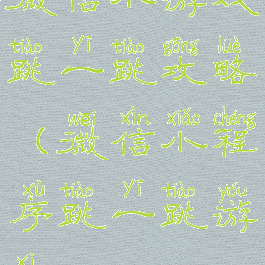 微信小游戏
tiào yī tiào gōng lüè
跳一跳攻略
wēi xìn xiǎo chéng
（微信小程
xù tiào yī tiào yóu
序跳一跳游
xì